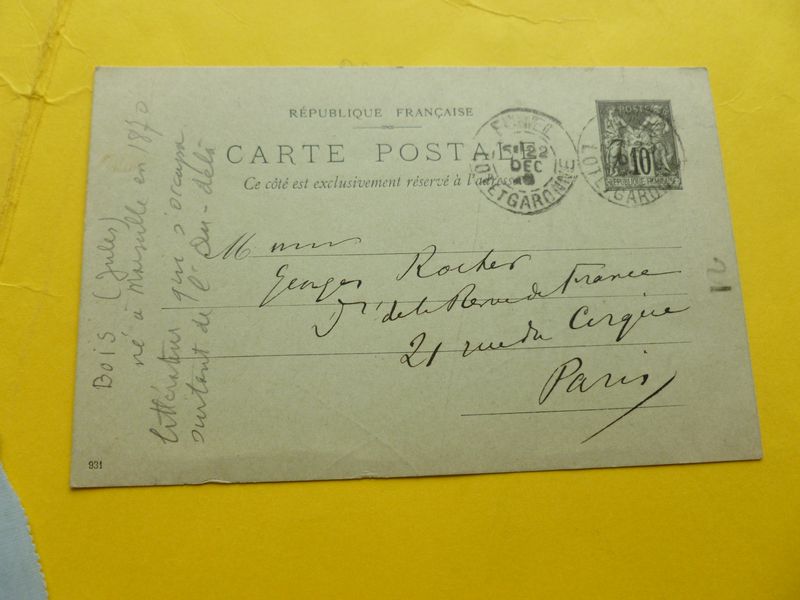 RÉPUBLIQUE FRANÇAISE
CARTE POSTALE
Ce côté est exclusivement réservé à l'adresse
FUMEL
22
DEC
LOT ET GARONNE
POSTES
10
RÉPUBLIQUE FRANÇAISE
LOT ET GARONNE
Georges Rocher
Dr de la Revue de France
21 rue du Cirque
Paris
12
931
BOIS (Jules)
né à Marseille en 1870
littérateur qui s'occupa
surtout de l'Au-delà